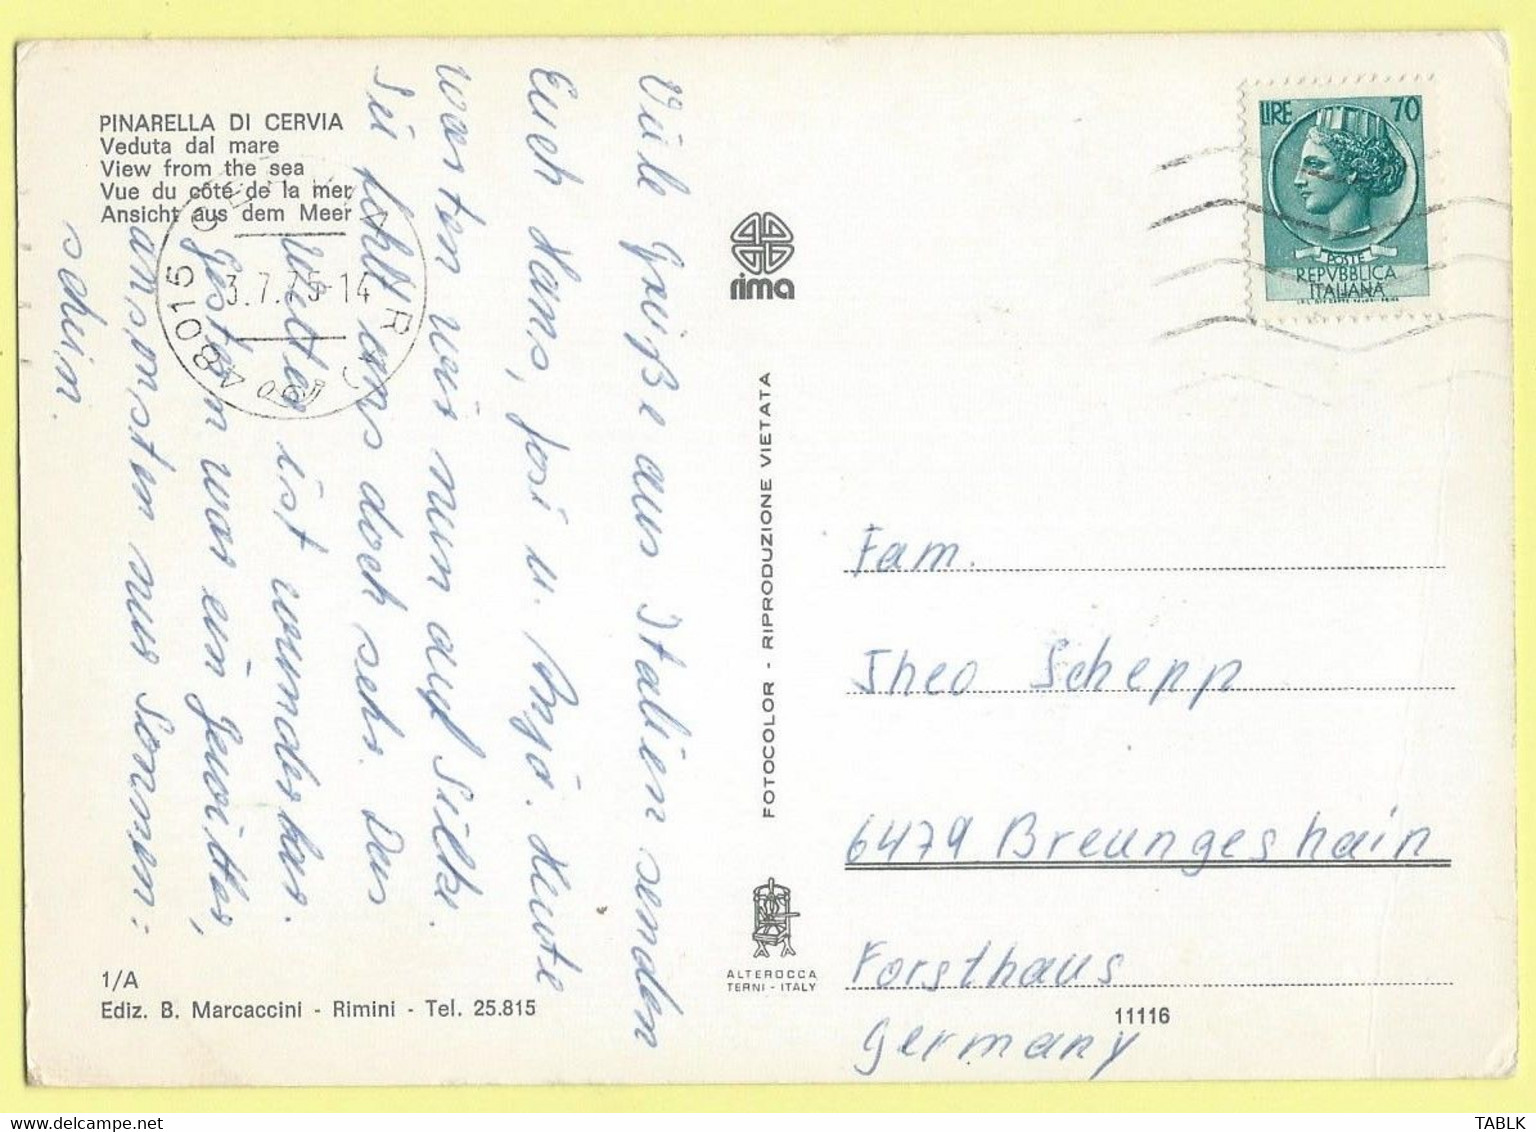 PINARELLA DI CERVIA
Veduta dal mare
View from the sea
Vue du côté de la mer
Ansicht aus dem Meer
Viele Grüße aus Italien senden
Euch Hans, Josi u. Anja. Heute
warten wir nun auf Silke.
Sie fehlt uns doch sehr. Das
Wetter ist wunderbar.
Gestern war ein Gewitter,
ansonsten nur Sonnen:
schein.
48015
3.7.75-14
1/A
Ediz. B. Marcaccini - Rimini - Tel. 25.815
rima
FOTOCOLOR - RIPRODUZIONE VIETATA
ALTEROCCA
TERNI - ITALY
LIRE 70
POSTE
REPVBBLICA
ITALIANA
Fam.
Theo Schepp
6479 Breungeshain
Forsthaus
11116
Germany
TABLK